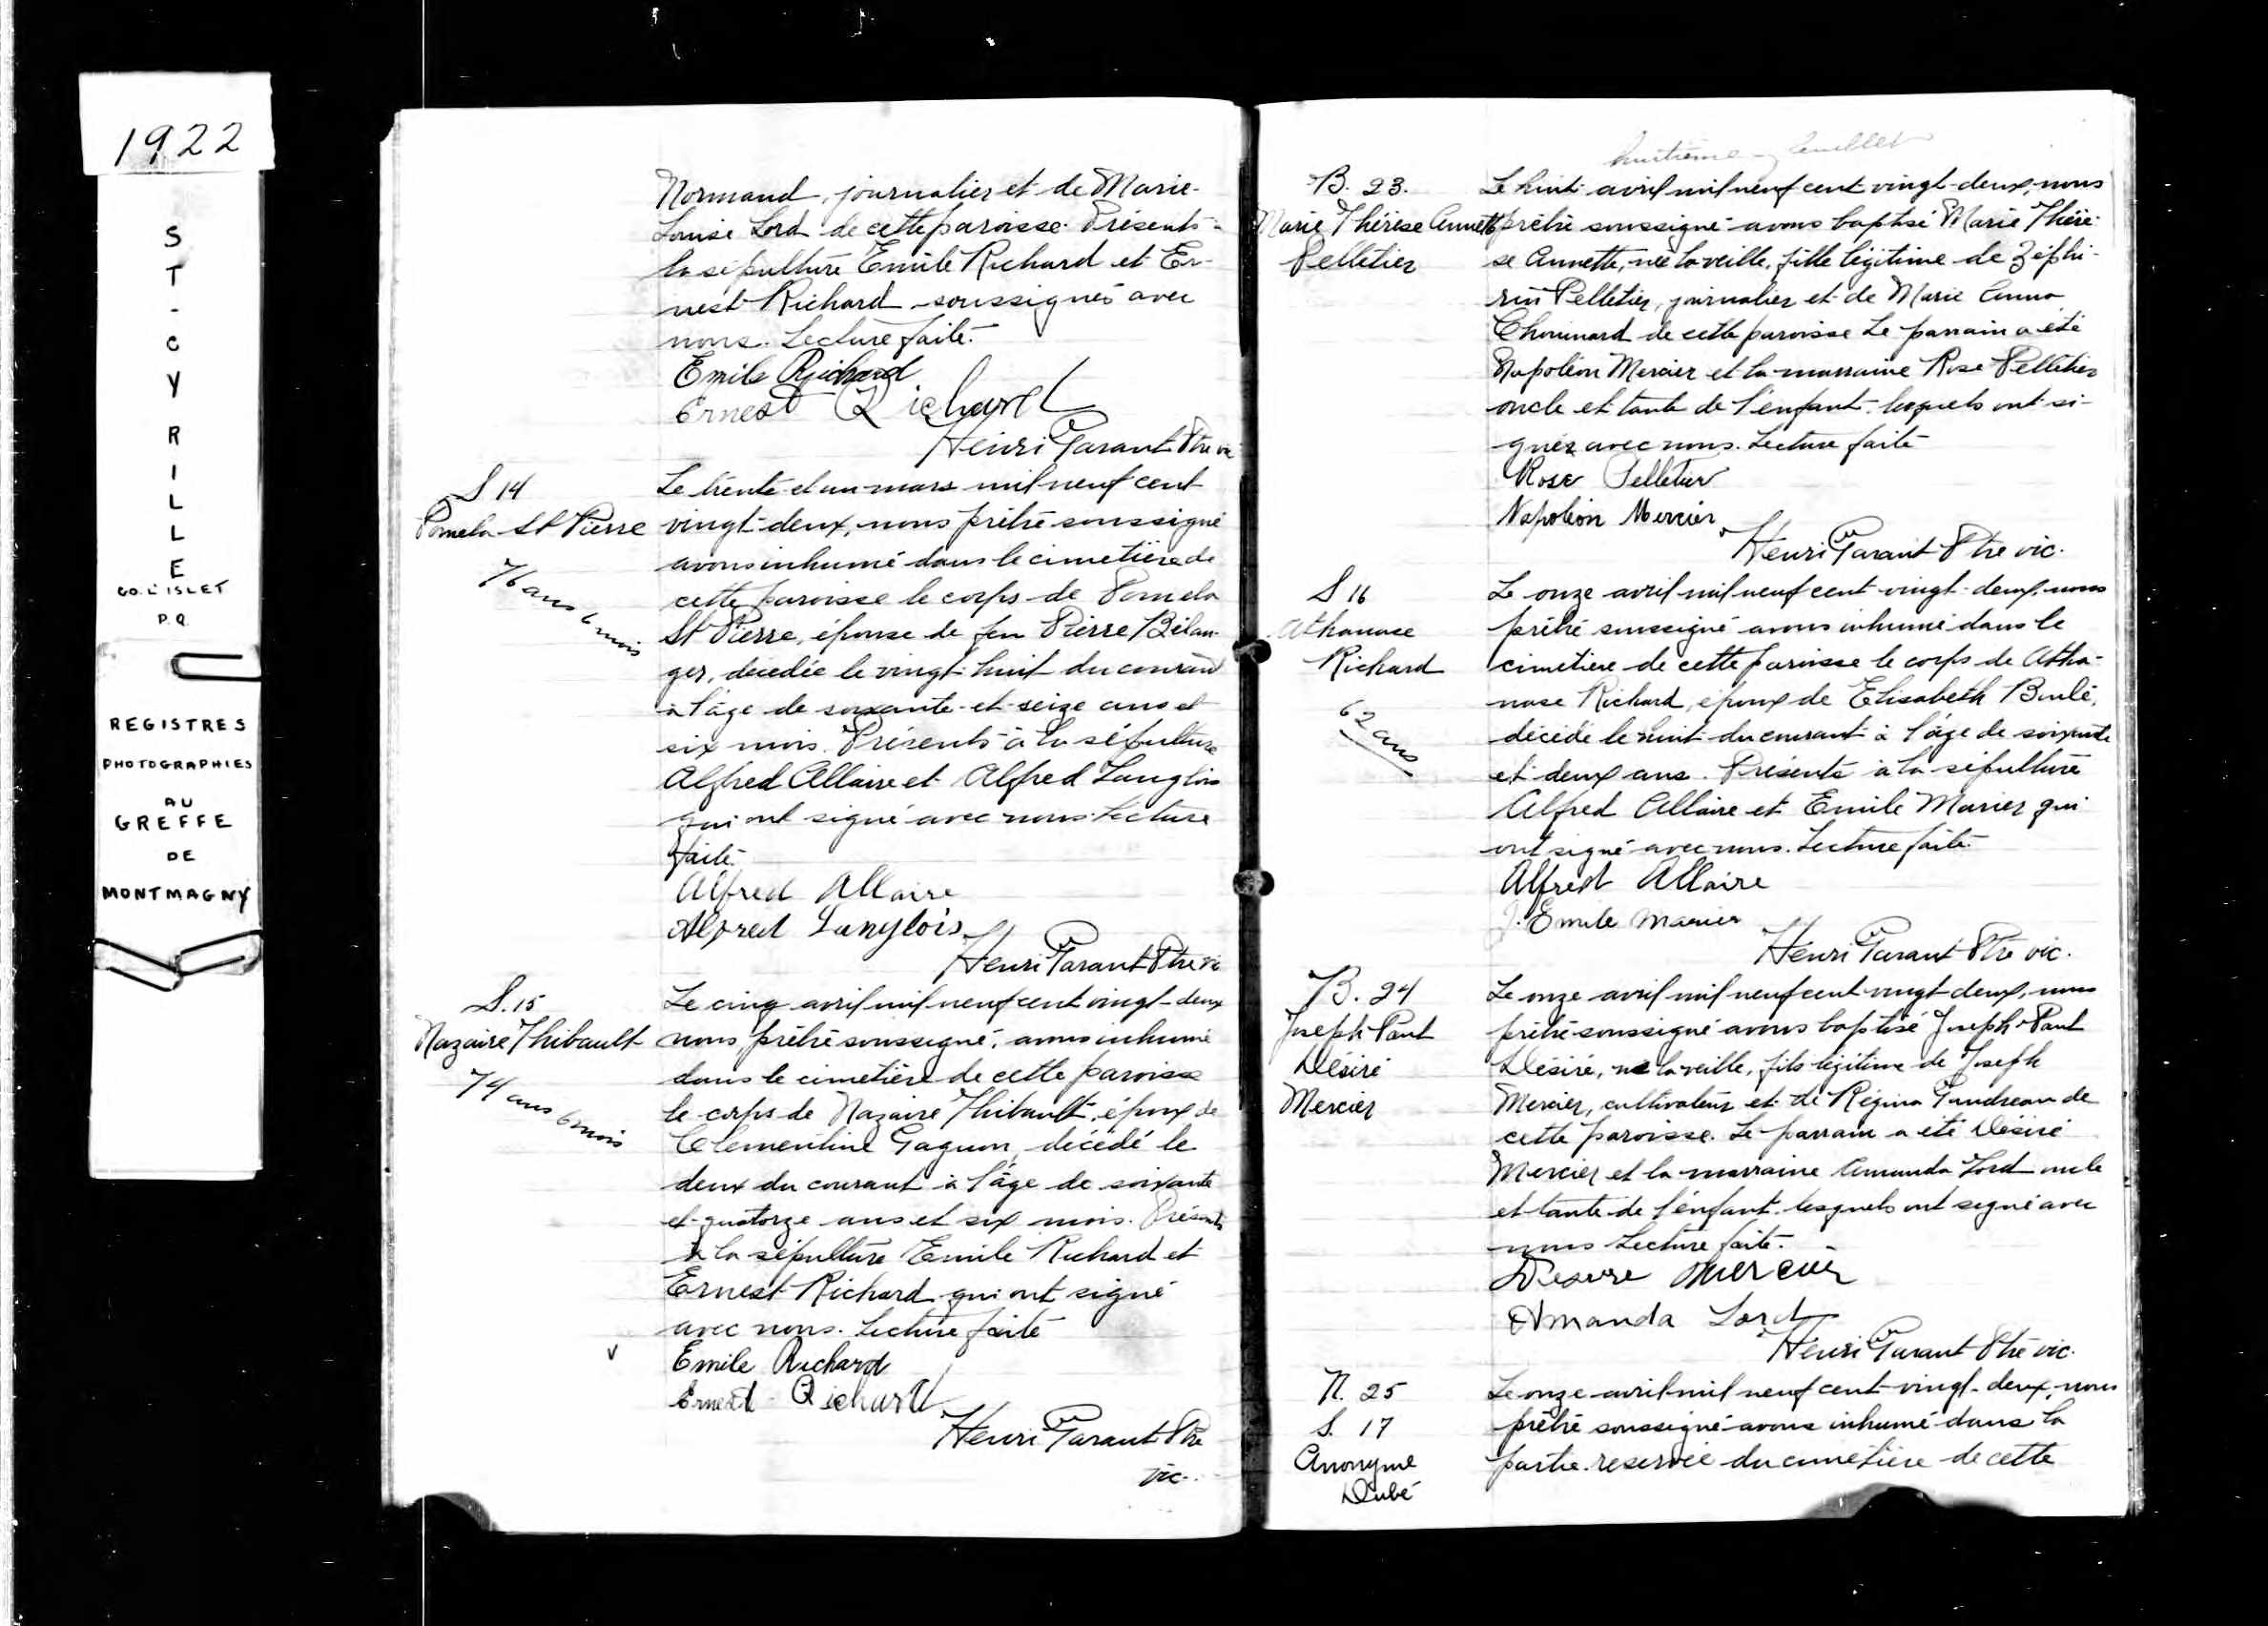 1922
ST-CYRILLE
CO. L'ISLET
P.Q.
REGISTRES
PHOTOGRAPHIES
AU
GREFFE
DE
MONTMAGNY
Normand, journalier et de Marie-
Louise Lord de cette paroisse. Présents à
la sépulture Emile Richard et Er-
nest Richard soussignés avec
nous. Lecture faite.
Emile Richard
Ernest Richard
Henri Garant Ptre vic
S 14
Pomela St Pierre
76 ans 6 mois
Le trente et un mars mil neuf cent
vingt-deux, nous prêtre soussigné
avons inhumé dans le cimetière de
cette paroisse le corps de Pomela
St Pierre, épouse de feu Pierre Bélan-
ger, décédée le vingt-huit du courant
à l'âge de soixante-et-seize ans et
six mois. Présents à la sépulture
Alfred Allaire et Alfred Langlois
qui ont signé avec nous. Lecture
faite.
Alfred Allaire
Alfred Langlois
Henri Garant Ptre vic
S. 15
Nazaire Thibault
74 ans 6 mois
Le cinq avril mil neuf cent vingt-deux
nous prêtre soussigné, avons inhumé
dans le cimetière de cette paroisse
le corps de Nazaire Thibault, époux de
Clementine Gagnon, décédé le
deux du courant à l'âge de soixante
et quatorze ans et six mois. Présents
à la sépulture Emile Richard et
Ernest Richard qui ont signé
avec nous. Lecture faite
Emile Richard
Ernest Richard
Henri Garant Ptre
vic.
huitième feuillet
B. 23.
Marie Thérèse Annette
Pelletier
Le huit avril mil neuf cent vingt-deux, nous
prêtre soussigné avons baptisé Marie Thérè-
se Annette, née la veille, fille légitime de Zéphi-
rin Pelletier, journalier et de Marie Anna
Chouinard de cette paroisse Le parrain a été
Napoléon Mercier et la marraine Rose Pelletier
oncle et tante de l'enfant lesquels ont si-
gnés avec nous. Lecture faite
Rose Pelletier
Napoléon Mercier
Henri Garant Ptre vic.
S 16
Athanase
Richard
62 ans
Le onze avril mil neuf cent vingt-deux, nous
prêtre soussigné avons inhumé dans le
cimetière de cette paroisse le corps de Atha-
nase Richard, époux de Elisabeth Boulé,
décédé le huit du courant à l'âge de soixante
et deux ans. Présents à la sépulture
Alfred Allaire et Emile Marier qui
ont signé avec nous. Lecture faite.
Alfred Allaire
J. Emile Marier
Henri Garant Ptre vic.
B. 24
Joseph Paul
Désiré
Mercier
Le onze avril mil neuf cent vingt-deux, nous
prêtre soussigné avons baptisé Joseph Paul
Désiré, né la veille, fils légitime de Joseph
Mercier, cultivateur et de Régina Gaudreau de
cette paroisse. Le parrain a été Désiré
Mercier et la marraine Amanda Lord oncle
et tante de l'enfant lesquels ont signé avec
nous Lecture faite.
Desire Mercier
Amanda Lord
Henri Garant Ptre vic.
N. 25
S. 17
Anonyme
Dubé
Le onze avril mil neuf cent vingt-deux, nous
prêtre soussigné avons inhumé dans la
partie reservée du cimetière de cette